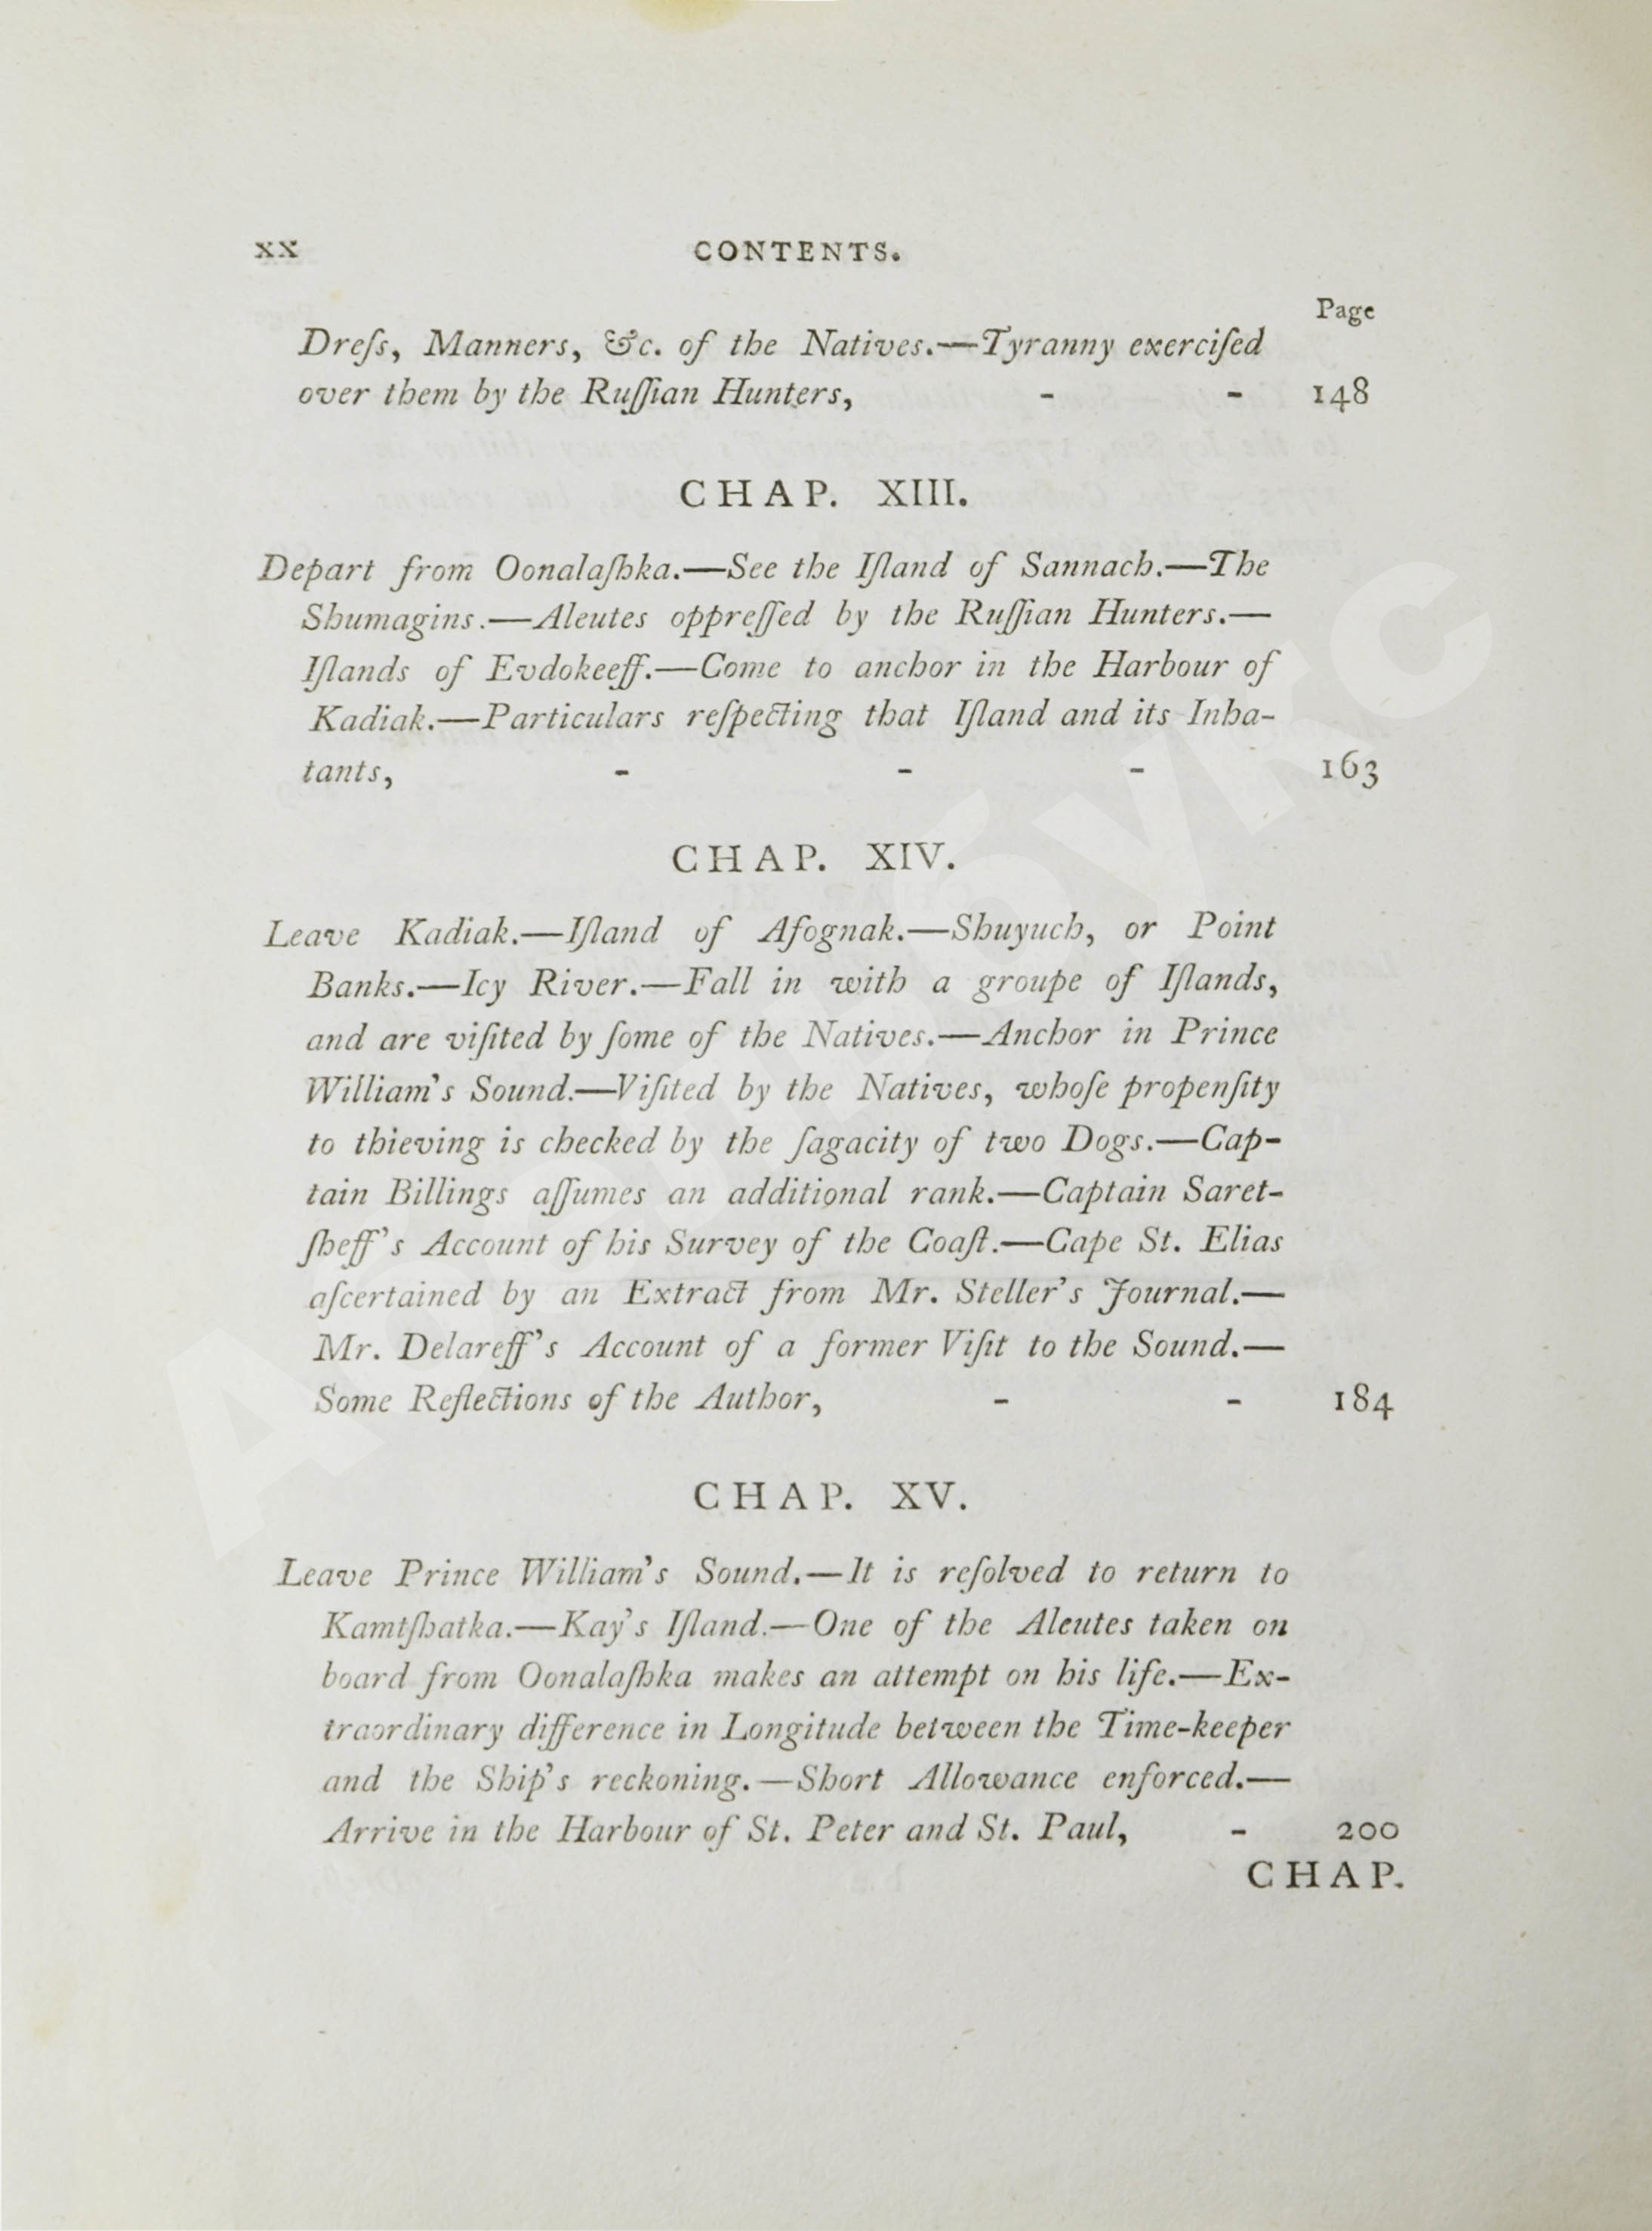 xx CONTENTS.
Page
Dreſs, Manners, &c. of the Natives.—Tyranny exerciſed
over them by the Ruſſian Hunters, - - 148
CHAP. XIII.
Depart from Oonalaſhka.—See the Iſland of Sannach.—The
Shumagins.—Aleutes oppreſſed by the Ruſſian Hunters.—
Iſlands of Evdokeeff.—Come to anchor in the Harbour of
Kadiak.—Particulars reſpecting that Iſland and its Inha-
tants, - - - 163
CHAP. XIV.
Leave Kadiak.—Iſland of Afognak.—Shuyuch, or Point
Banks.—Icy River.—Fall in with a groupe of Iſlands,
and are viſited by ſome of the Natives.—Anchor in Prince
William's Sound.—Viſited by the Natives, whoſe propenſity
to thieving is checked by the ſagacity of two Dogs.—Cap-
tain Billings aſſumes an additional rank.—Captain Saret-
ſheff's Account of his Survey of the Coaſt.—Cape St. Elias
aſcertained by an Extract from Mr. Steller's Journal.—
Mr. Delareff's Account of a former Viſit to the Sound.—
Some Reflections of the Author, - - 184
CHAP. XV.
Leave Prince William's Sound.—It is reſolved to return to
Kamtſhatka.—Kay's Iſland.—One of the Aleutes taken on
board from Oonalaſhka makes an attempt on his life.—Ex-
traordinary difference in Longitude between the Time-keeper
and the Ship's reckoning.—Short Allowance enforced.—
Arrive in the Harbour of St. Peter and St. Paul, - 200
CHAP.